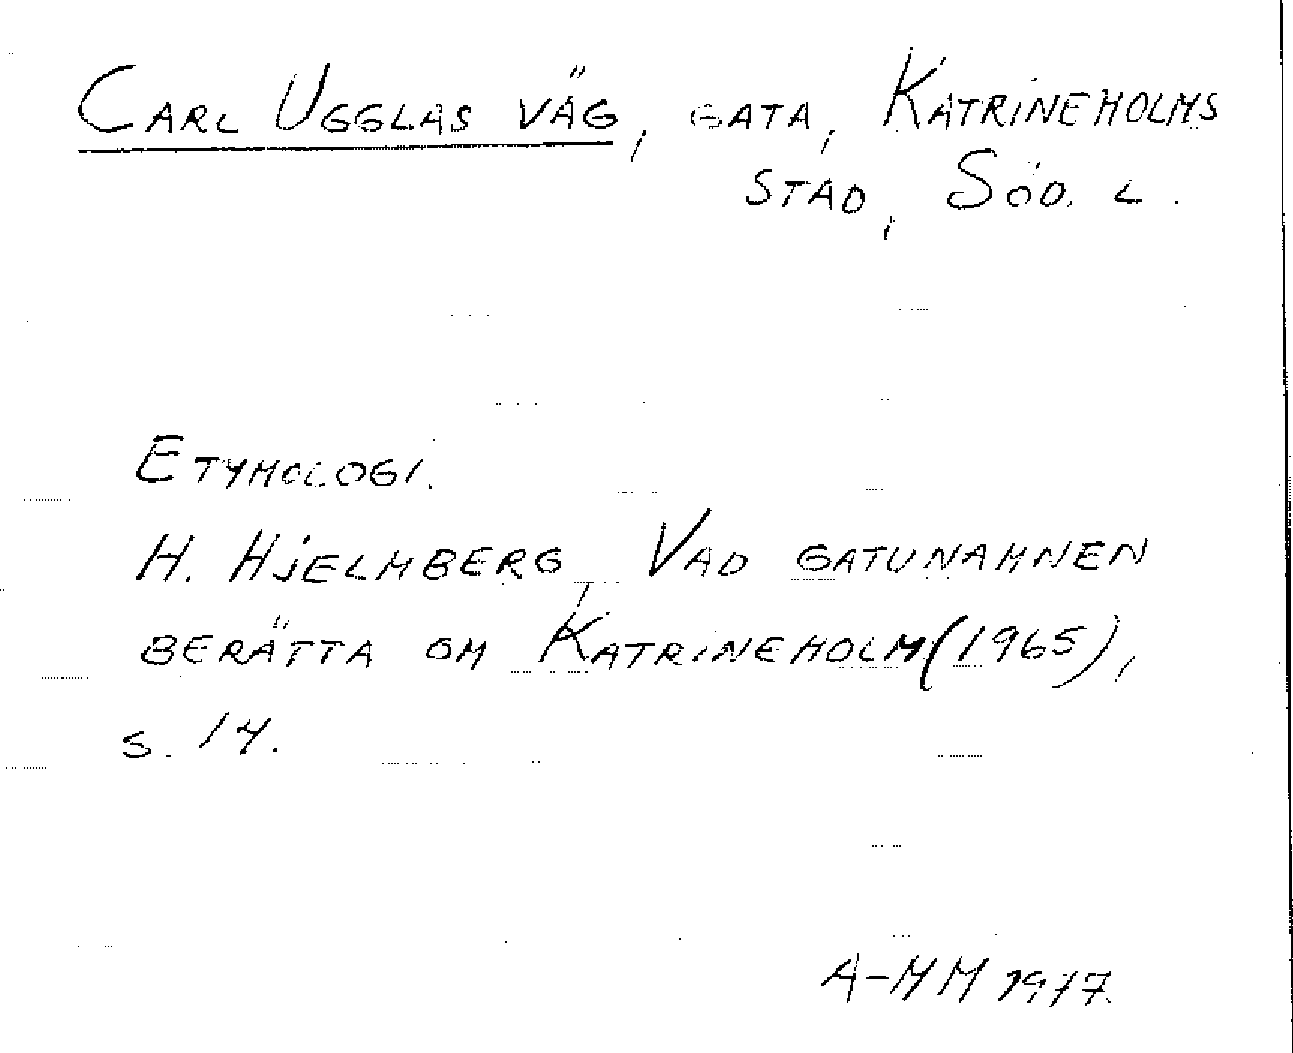 CARL UGGLAS VÄG, GATA, KATRINEHOLMS
STAD, SÖD. L.
ETYMOLOGI.
H. HJELMBERG, VAD GATUNAMNEN
BERÄTTA OM KATRINEHOLM (1965),
s. 14.
A-MM 1977.